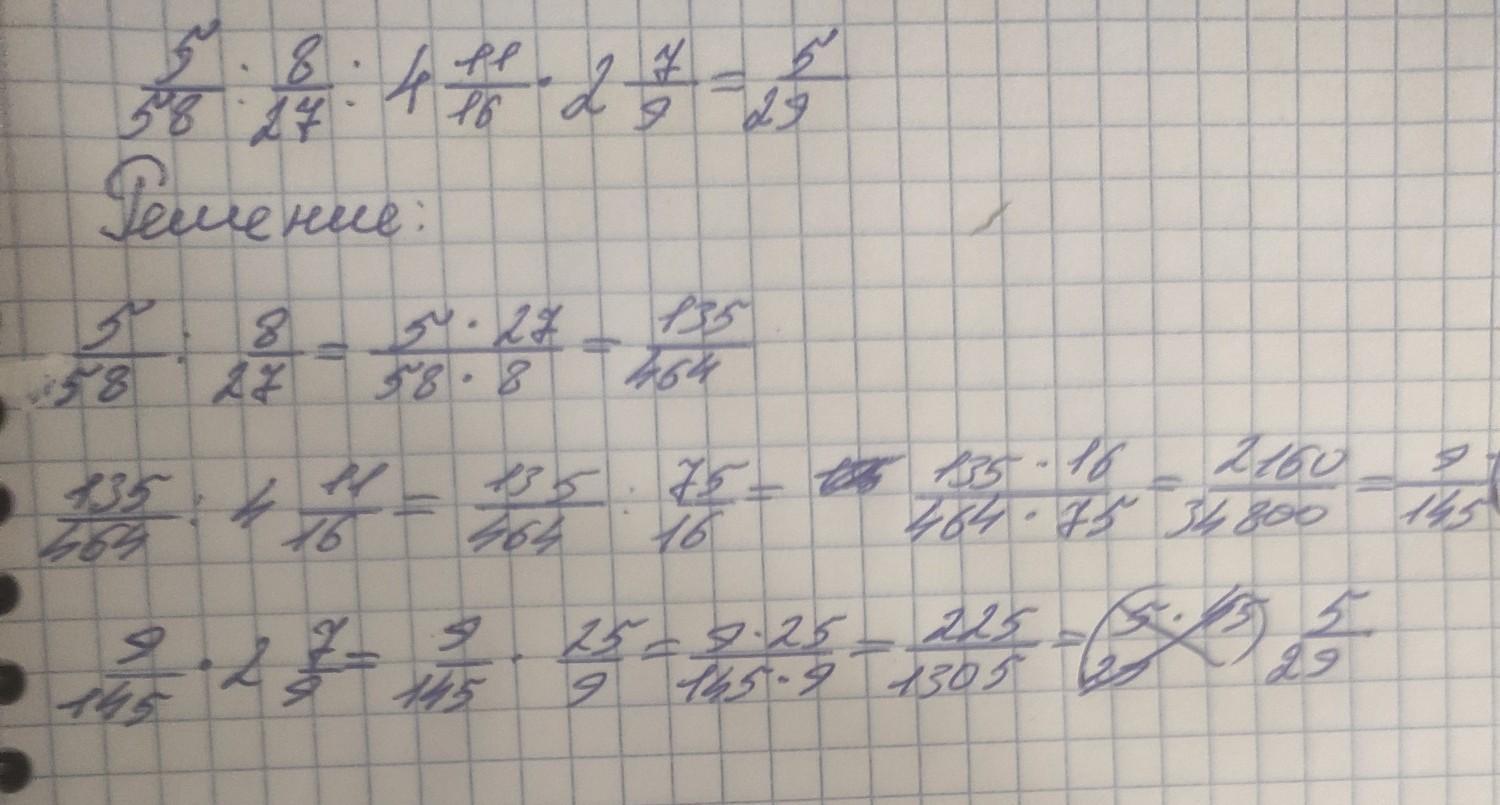 5/58 : 8/27 : 4 11/16 · 2 7/9 = 5/29
Решение:
5/58 : 8/27 = 5 · 27/58 · 8 = 135/464
135/464 : 4 11/16 = 135/464 : 75/16 = 135 · 16/464 · 75 = 2160/34800 = 9/145
9/145 · 2 7/9 = 9/145 · 25/9 = 9 · 25/145 · 9 = 225/1305 = 5/29